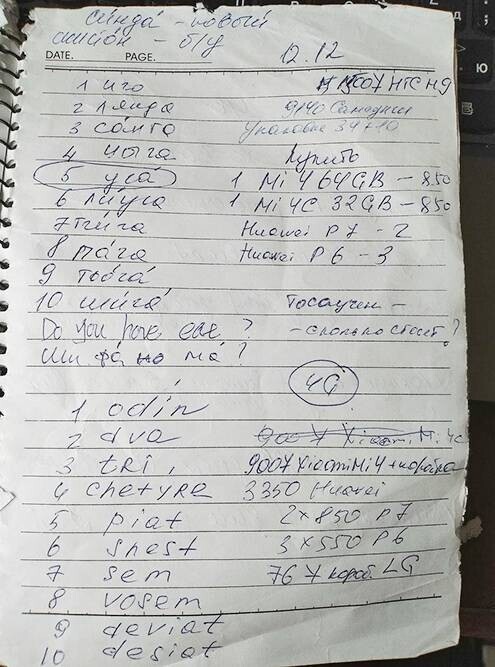 синда - новый
- б/у
DATE. PAGE. 12.12
1 иго
2 лянда
9140
3 санга
Упаковка 34710
4 цыга
Купить
5 уса
1 Mi 4 64 GB - 850
6 лиуга
1 Mi 4C 32 GB - 850
7 тига
Huawei P7 - 2
8 пага
Huawei P6 - 3
9 тьога
10 шига
Тосаучен -
Do you have ? - сколько стоит?
фа но ма?
4G
1 odin
2 dva
3 tri
900 ¥ Xiaomi Mi 4 + коробка
4 chetyre
3350 Huawei
5 piat
2 x 850 P7
6 shest
3 x 550 P6
7 sem
76 ¥ короб. LG
8 vosem
9 deviat
10 desiat